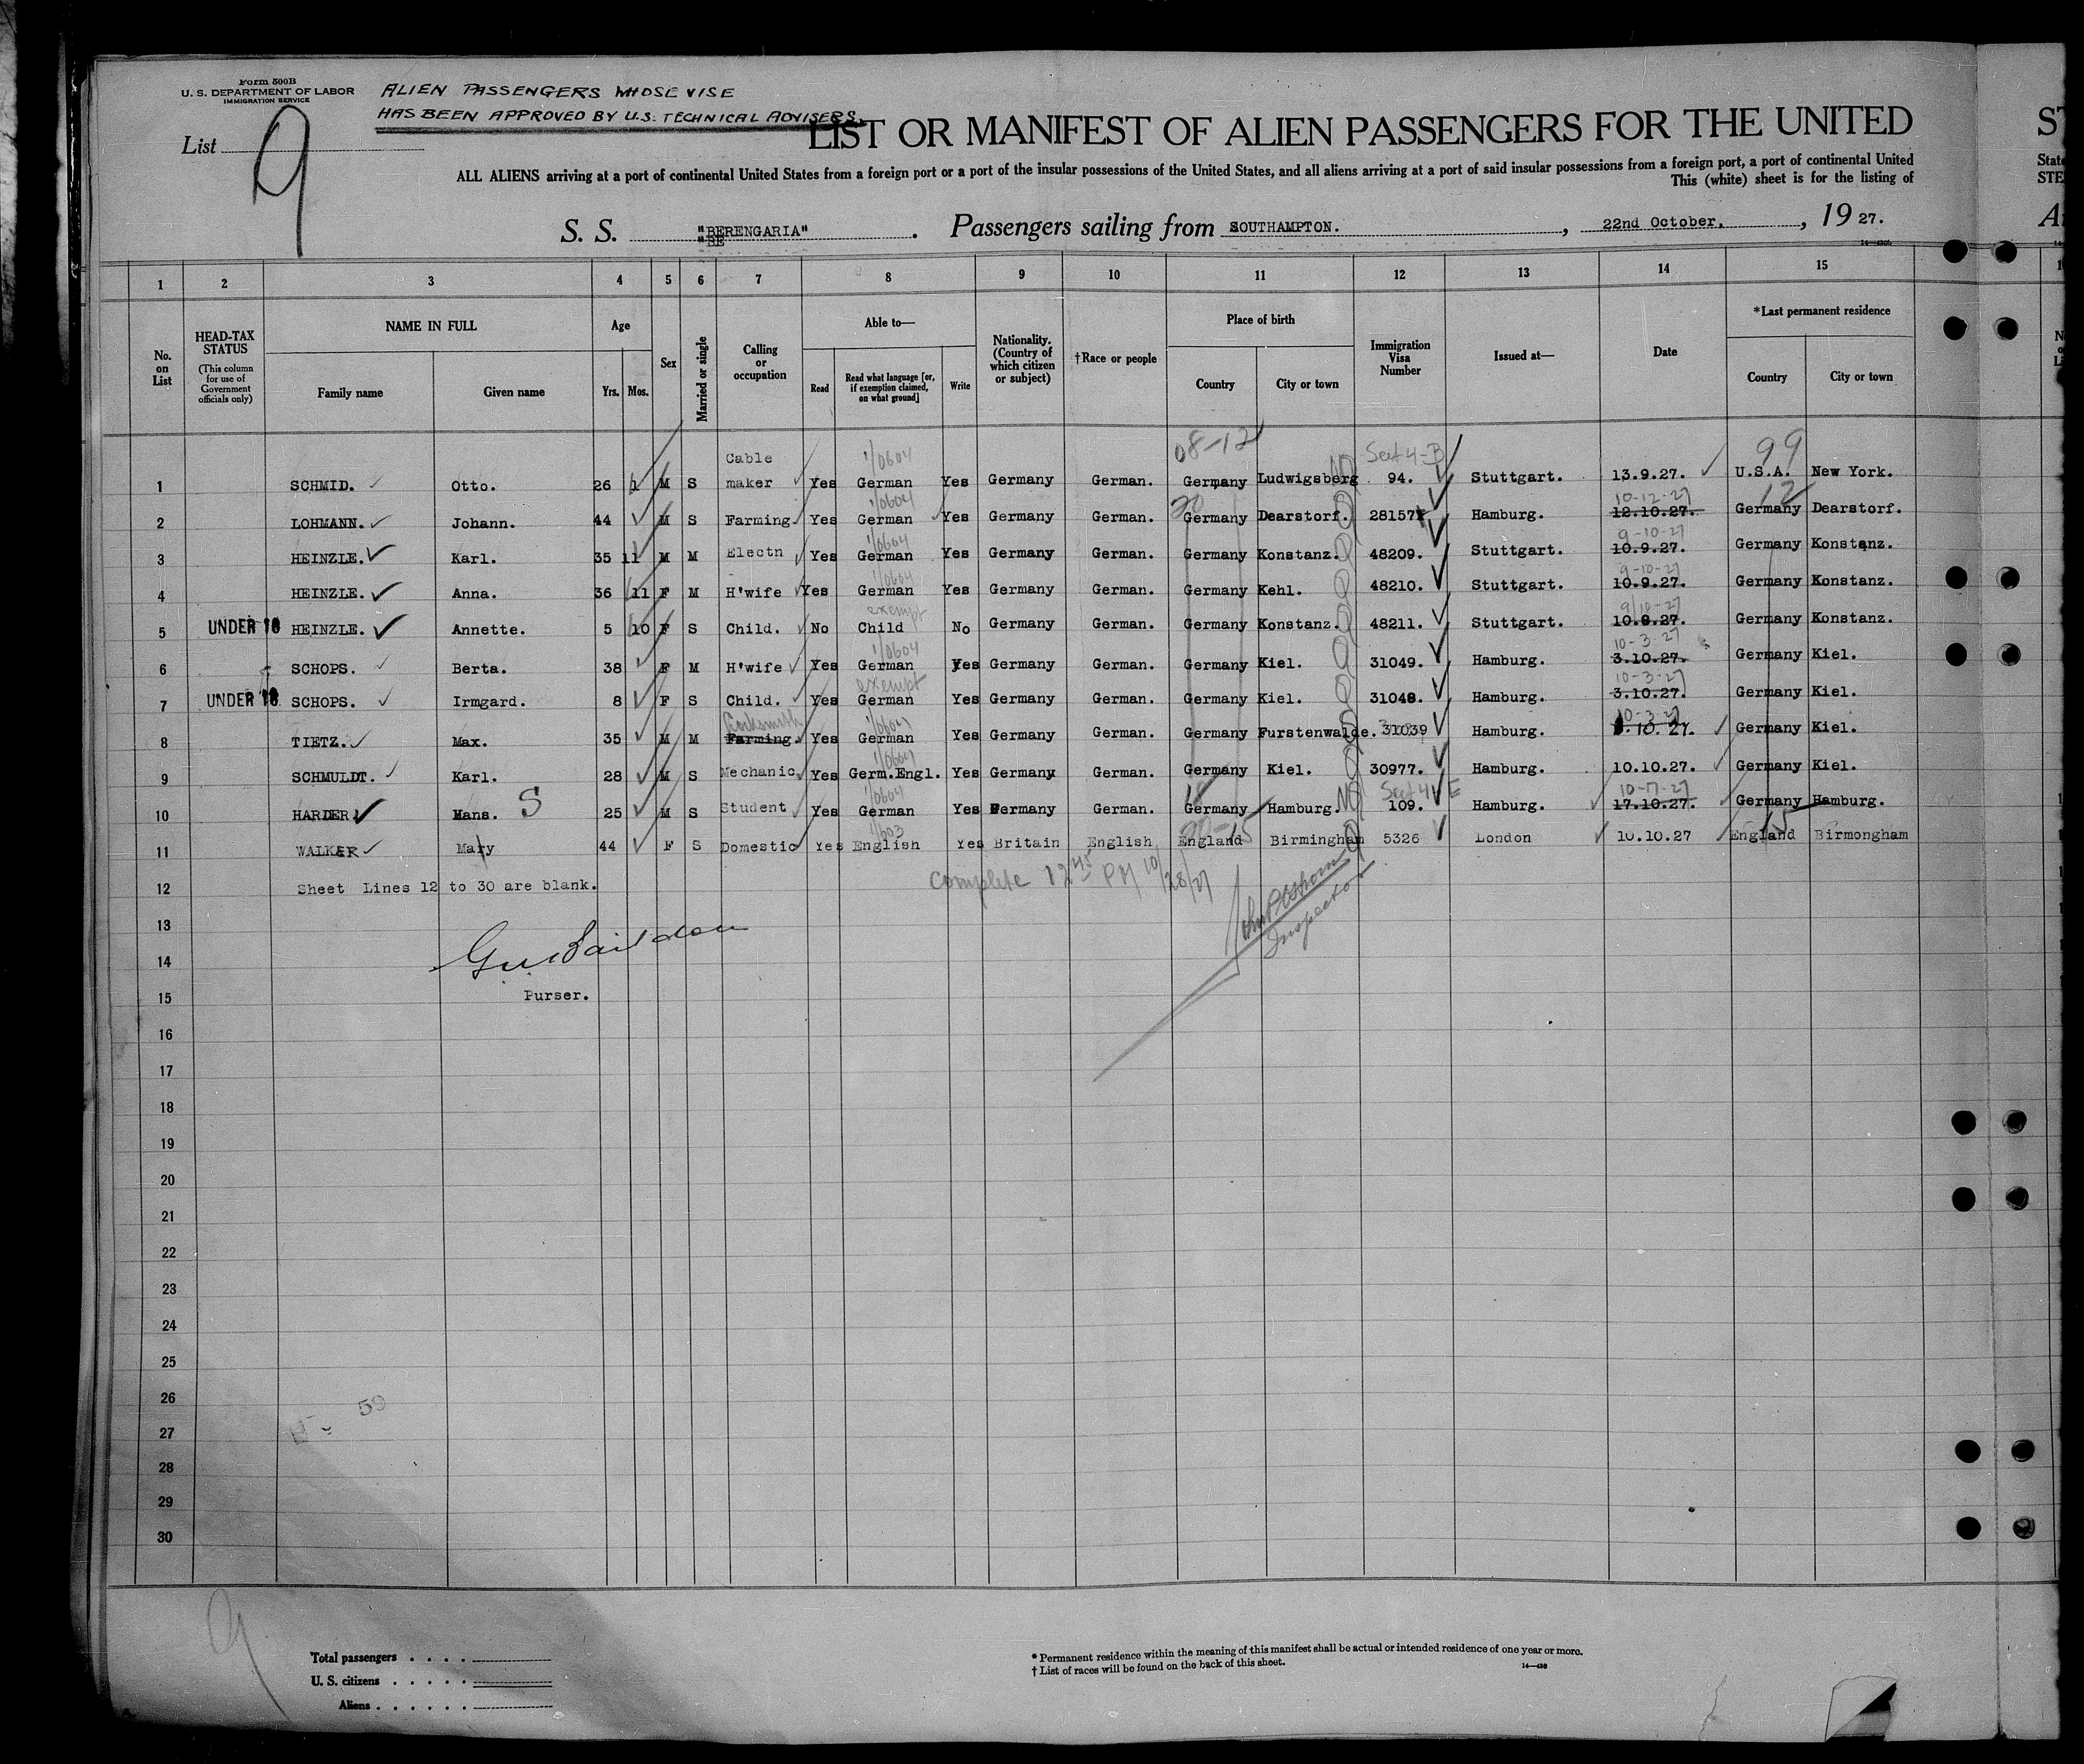 Form 500B
U. S. DEPARTMENT OF LABOR
IMMIGRATION SERVICE
ALIEN PASSENGERS WHOSE VISE
HAS BEEN APPROVED BY U.S. TECHNICAL ADVISERS.
List 9
LIST OR MANIFEST OF ALIEN PASSENGERS FOR THE UNITED
ALL ALIENS arriving at a port of continental United States from a foreign port or a port of the insular possessions of the United States, and all aliens arriving at a port of said insular possessions from a foreign port, a port of continental United
This (white) sheet is for the listing of
S. S. "BERENGARIA" . Passengers sailing from SOUTHAMPTON. , 22nd October, , 19 27.
"BE
1 2 3 4 5 6 7 8 9 10 11 12 13 14 15
No. on List
HEAD-TAX STATUS (This column for use of Government officials only)
NAME IN FULL
Family name Given name
Age
Yrs. Mos.
Sex
Married or single
Calling or occupation
Able to—
Read
Read what language [or, if exemption claimed, on what ground]
Write
Nationality. (Country of which citizen or subject)
†Race or people
Place of birth
Country City or town
Immigration Visa Number
Issued at—
Date
*Last permanent residence
Country City or town
08-12 Sect 4-B 99
1 SCHMID. Otto. 26 1 M S Cable maker Yes German 1/0604 Yes Germany German. Germany Ludwigsberg 94. Stuttgart. 13.9.27. U.S.A. New York.
2 LOHMANN. Johann. 44 M S Farming. Yes German 1/0604 Yes Germany German. Germany Dearstorf. 28157 Hamburg. 12.10.27. 10-12-27 Germany Dearstorf.
3 HEINZLE. Karl. 35 11 M M Electn Yes German 1/0604 Yes Germany German. Germany Konstanz. 48209. Stuttgart. 10.9.27. 9-10-27 Germany Konstanz.
4 HEINZLE. Anna. 36 11 F M H'wife Yes German 1/0604 Yes Germany German. Germany Kehl. 48210. Stuttgart. 10.9.27. 9-10-27 Germany Konstanz.
5 UNDER 16 HEINZLE. Annette. 5 10 F S Child. No Child exempt No Germany German. Germany Konstanz. 48211. Stuttgart. 10.9.27. 9/10-27 Germany Konstanz.
6 SCHOPS. Berta. 38 F M H'wife Yes German 1/0604 Yes Germany German. Germany Kiel. 31049. Hamburg. 3.10.27. 10-3-27 Germany Kiel.
7 UNDER 16 SCHOPS. Irmgard. 8 F S Child. Yes German exempt Yes Germany German. Germany Kiel. 31048. Hamburg. 3.10.27. 10-3-27 Germany Kiel.
8 TIETZ. Max. 35 M M Farming. Locksmith Yes German 1/0604 Yes Germany German. Germany Furstenwalde. 31039 Hamburg. 3.10.27. 10-3-27 Germany Kiel.
9 SCHMULDT. Karl. 28 M S Mechanic Yes Germ.Engl. 1/0604 Yes Germany German. Germany Kiel. 30977. Hamburg. 10.10.27. Germany Kiel.
10 HARDER. Hans. S 25 M S Student Yes German 1/0604 Yes Germany German. Germany Hamburg. 109. Hamburg. 17.10.27. 10-17-27 Germany Hamburg.
11 WALKER Mary 44 F S Domestic Yes English 1/603 Yes Britain English England Birmingham 5326 London 10.10.27 England Birmongham
12 Sheet Lines 12 to 30 are blank.
Complete 12 45 PM 10/28/27
Inspector
13
14
15 Purser.
16
17
18
19
20
21
22
23
24
25
26
27
28
29
30
9
Total passengers
U. S. citizens
Aliens
* Permanent residence within the meaning of this manifest shall be actual or intended residence of one year or more.
† List of races will be found on the back of this sheet.